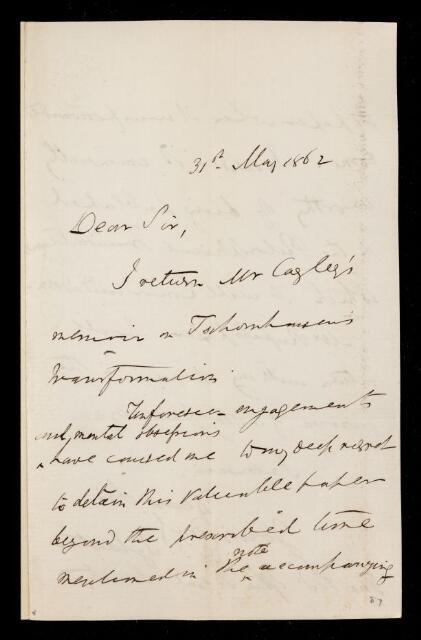 31st May 1862
Dear Sir,
I return Mr Cayley's
memoir on Tschirnhausen's
transformation
Unforeseen engagements
and mental obsessions
have caused me to my deep regret
to detain this valuable paper
beyond the prescribed time
mentioned in the note accompanying